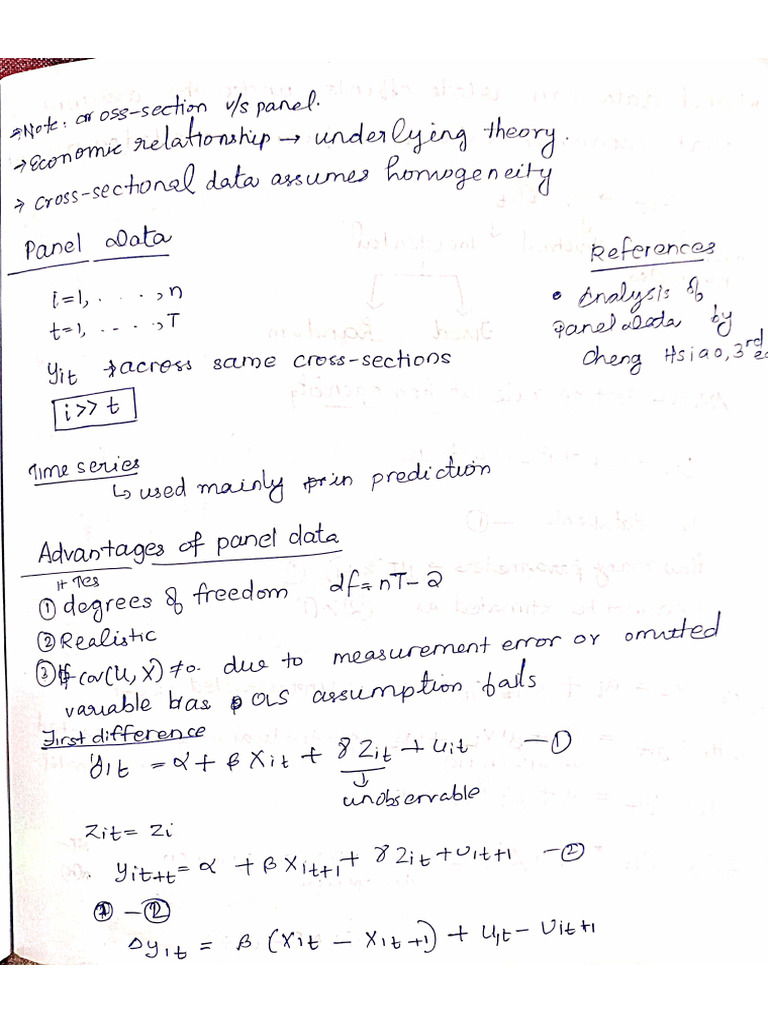 ⇒Note: cross-section v/s panel.
→ Economic relationship → underlying theory.
→ cross-sectional data assumes homogeneity
Panel Data
i=1, . . . ., n
t=1, . . . ., T
yit → across same cross-sections
i >> t
References
• Analysis of
Panel Data by
Cheng Hsiao, 3rd
Time series
↳ used mainly in prediction
Advantages of panel data
① degrees of freedom df = nT-2
② Realistic
③ If cov(u, X) ≠ 0. due to measurement error or omitted
variable bias OLS assumption fails
First difference
yit = α + β Xit + γ Zit + uit —①
↓
unobservable
Zit = Zi
yit+t = α + β Xit+1 + γ Zit + uit+1 —②
① - ②
Δyit = β (Xit - Xit+1) + uit - uit+1